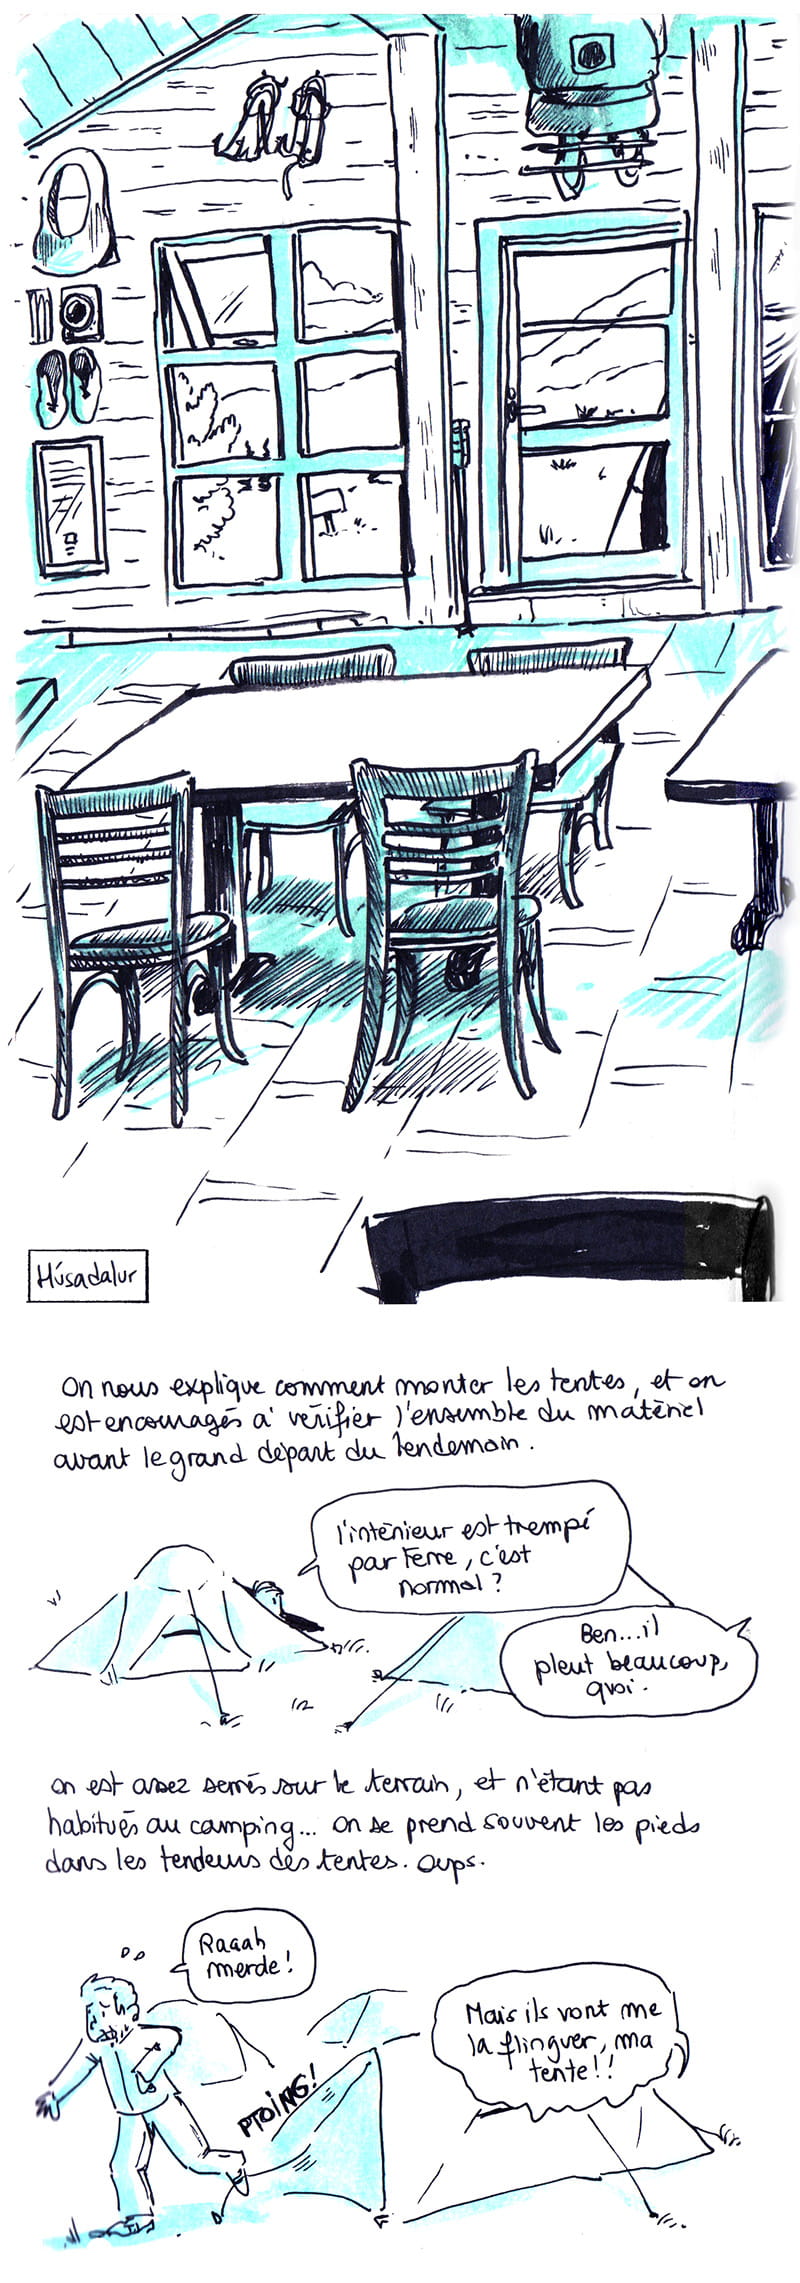 Húsadalur
On nous explique comment monter les tentes, et on
est encouragés à vérifier l'ensemble du matériel
avant le grand départ du lendemain.
l'intérieur est trempé
par terre, c'est
normal ?
Ben... il
pleut beaucoup,
quoi.
On est assez serrés sur le terrain, et n'étant pas
habitués au camping... on se prend souvent les pieds
dans les tendeurs des tentes. Oups.
Raaah
merde !
PTOING !
Mais ils vont me
la flinguer, ma
tente !!